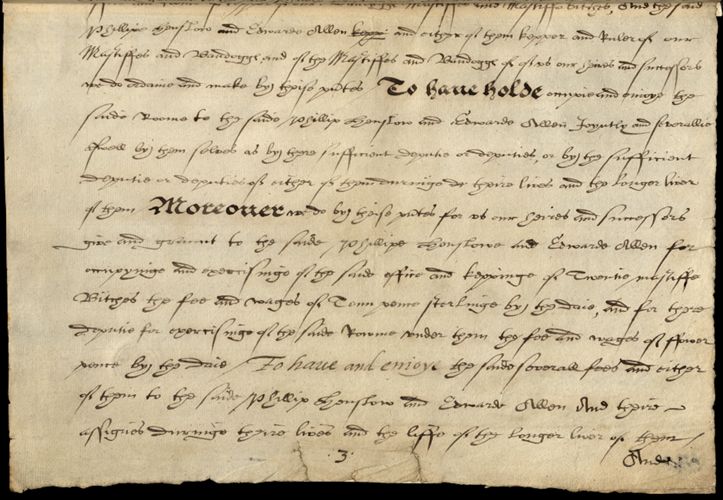 the Mastiffe and Mastiffe bitches, And the said
Phillipe Henslow and Edwarde Allen keppi and either of them kepper and Ruler of our
Mastiffes and Bandogge and of the Mastiffes and Bandogge of of us our heires and successors
we do ordaine and make by theise pntes To haue holde occupie and enioye the
saide Roome to the saide Phillip Henslow and Edwarde Allen Joyntly and severallie
aswell by them selves as by there sufficient deputie or deputies, or by the sufficient
deputie or deputies of either of them duringe the theire lives and the longer liver
of them Moreouer we do by theise pntes for us our heires and successors
give and graunt to the saide Phillipe Henslowe and Edwarde Allen for
occupyinge and exercisinge of the saide office and keppinge of Twentie mastiffe
Bitches the fee and wages of Tenn pence sterlinge by the daie, and for there
deputie for exercisinge of the saide Roome under them the fee and wages of ffower
pence by the daie / To haue and enioye the saide severall fees and either
of them to the saide Phillip Henslow and Edwarde Allen And theire
assignes duringe theire lives and the liffe of the longer liver of them /
.3.
And